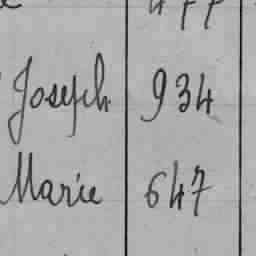 Joseph 934
Marie 647